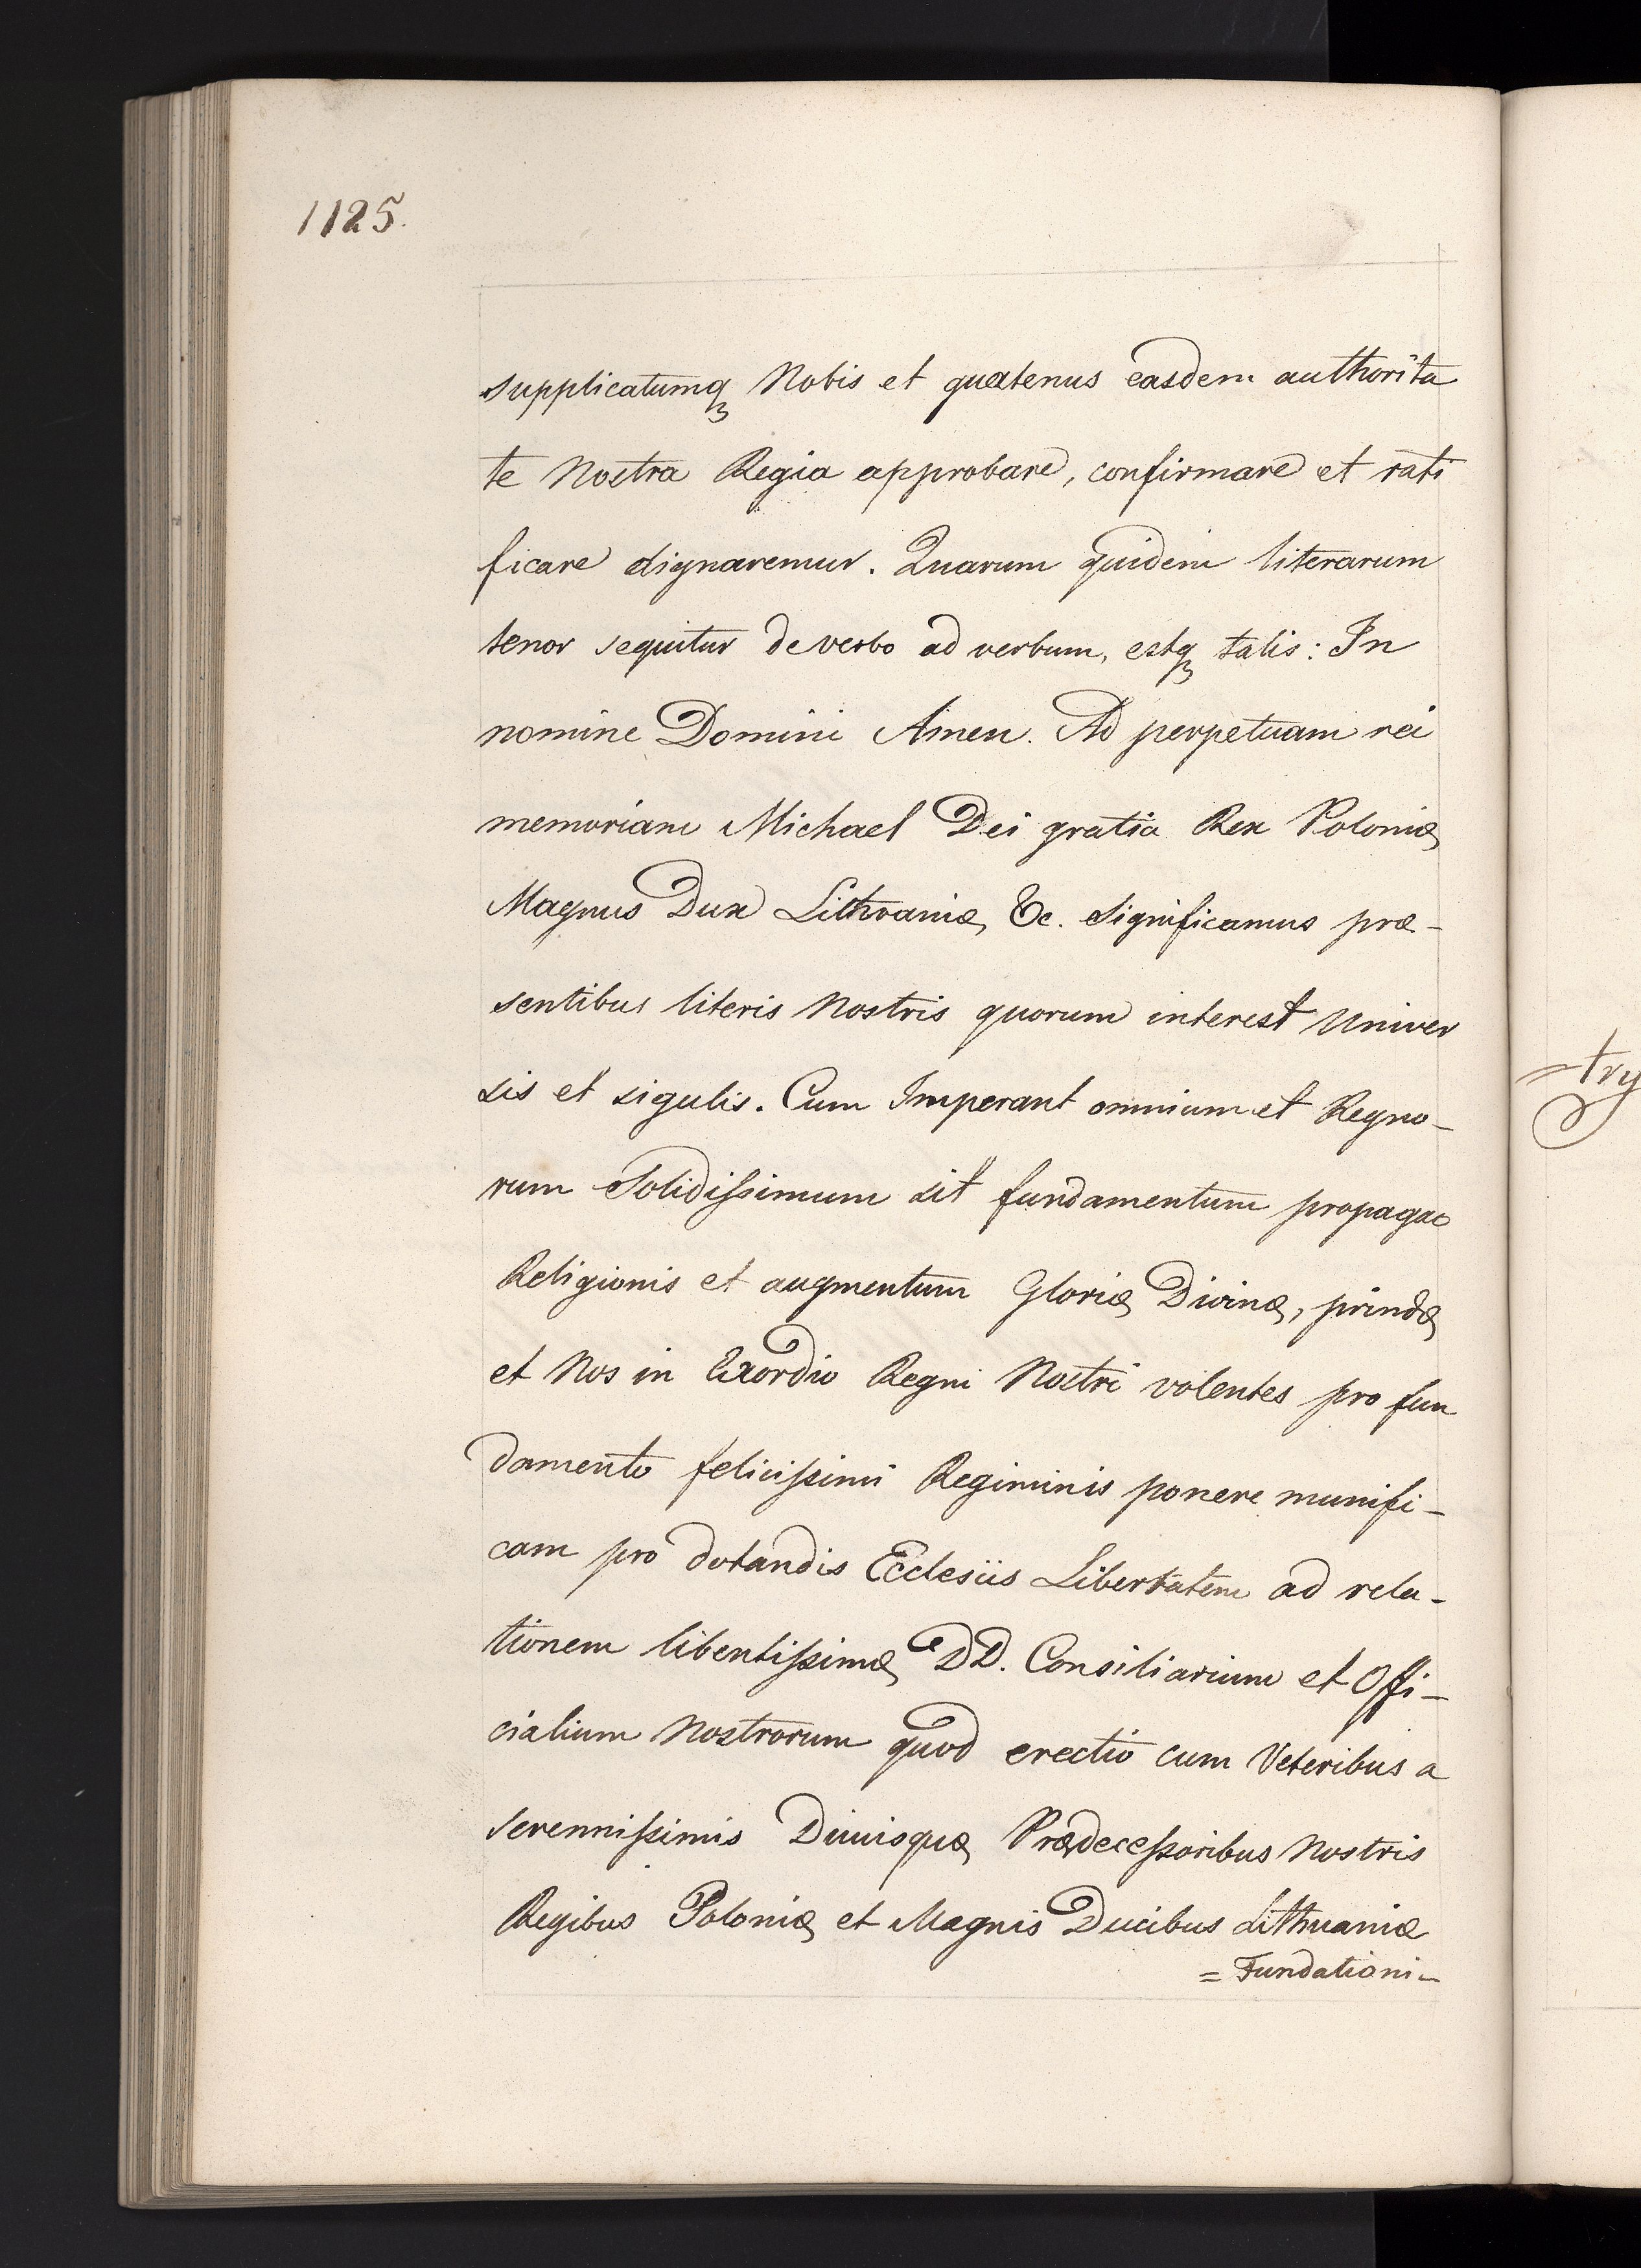 1125.
supplicatumqꝫ Nobis et quatenus easdem authorita
te Nostra Regia approbare, confirmare et rati
ficare dignaremur. Quarum quidem literarum
tenor sequitur de verbo ad verbum, estqꝫ talis: In
nomine Domini Amen. Ad perpetuam rei
memoriam Michael Dei gratia Rex Poloniæ
Magnus Dux Lithvaniæ, &c. Significamus præ-
sentibus literis Nostris quorum interest Univer
sis et sigulis. Cum Imperant omnium et Regno-
rum Solidissimum sit fundamentum propagao
Religionis et augmentum Gloriæ Divinæ, prindæ
et Nos in Exordio Regni Nostri volentes pro fun
damento felicissimi Regiminis ponere munifi-
cam pro dotandis Ecclesiis Libertatem ad rela-
tionem libentissimæ DD. Consiliarium et Offi-
cialium Nostrorum quod erectio cum Veteribus a
Serennissimis Diuisquæ Prædecessoribus Nostris
Regibus Poloniæ et Magnis Ducibus Lithuaniæ
= Fundationi-
try